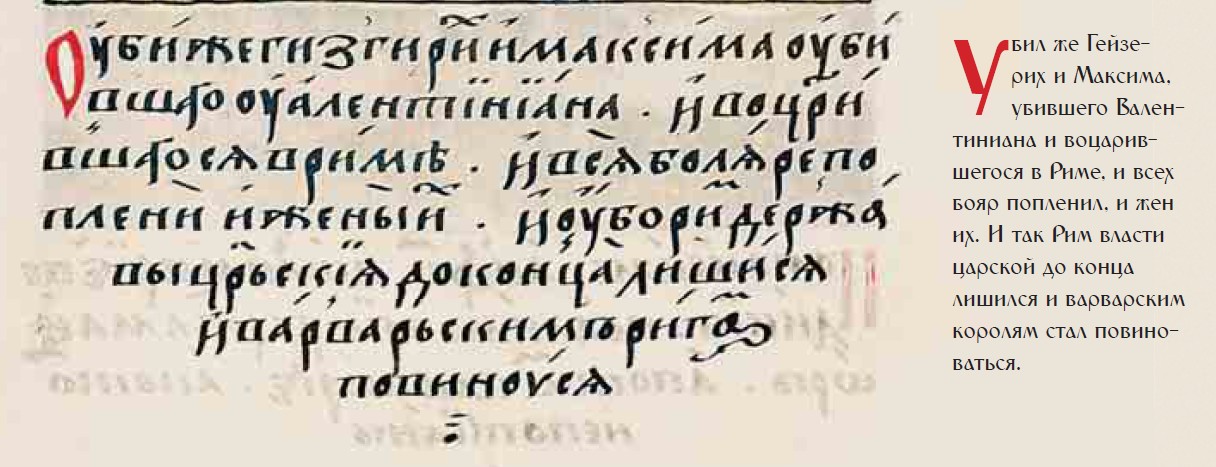 Оуби же гизгирий и максима оуби
вшаго оуалентїнїана . и воцр҃и
вшагося в римѣ . и вся боляре по
плени и жены и҆х . и оубо рим держа
вы цр҃ьскїя до конца лишися
и варварьскимъ
повиноуся
Убил же Гейзе-
рих и Максима,
убившего Вален-
тиниана и воцарив-
шегося в Риме, и всех
бояр попленил, и жен
их. И так Рим власти
царской до конца
лишился и варварским
королям стал повино-
ваться.